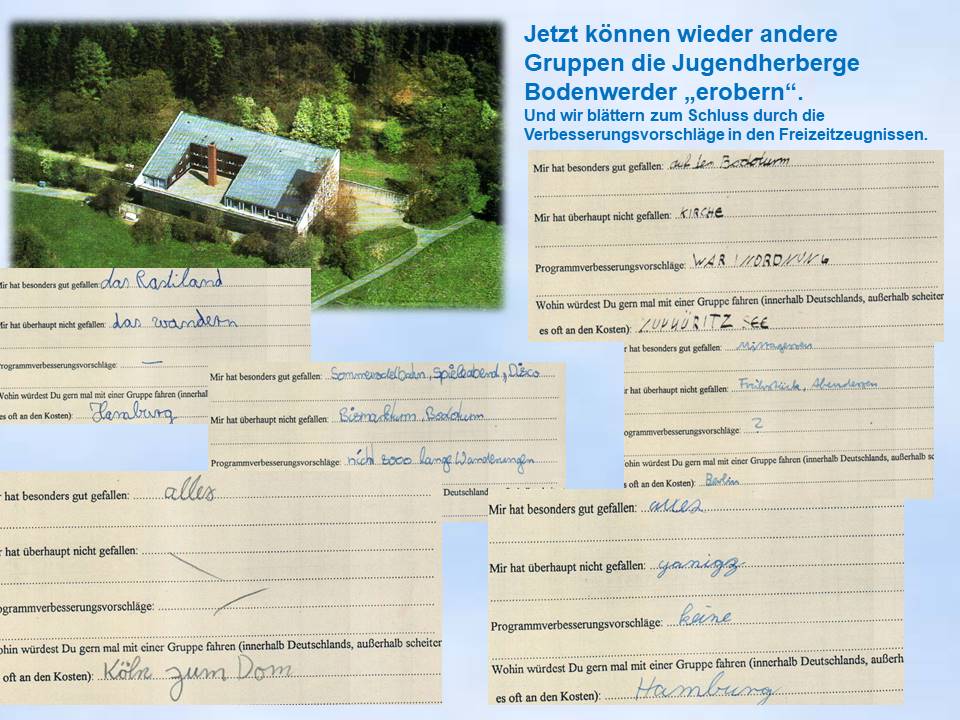 Jetzt können wieder andere
Gruppen die Jugendherberge
Bodenwerder „erobern“.
Und wir blättern zum Schluss durch die
Verbesserungsvorschläge in den Freizeitzeugnissen.
Mir hat besonders gut gefallen: auf den Bodoturm
Mir hat überhaupt nicht gefallen: KIRCHE
Programmverbesserungsvorschläge: WAR INORDNUNG
Wohin würdest Du gern mal mit einer Gruppe fahren (innerhalb Deutschlands, außerhalb scheiter
es oft an den Kosten): MÜRITZ SEE
Mir hat besonders gut gefallen: das Rastiland
Mir hat überhaupt nicht gefallen: das wandern
Programmverbesserungsvorschläge: —
Wohin würdest Du gern mal mit einer Gruppe fahren (innerhal
es oft an den Kosten): Hamburg
r hat besonders gut gefallen: Mittagessen
r hat überhaupt nicht gefallen: Frühstück, Abendessen
ogrammverbesserungsvorschläge: ?
ohin würdest Du gern mal mit einer Gruppe fahren (innerhalb Deutschlands, außerhalb sc
s oft an den Kosten): Berlin
Mir hat besonders gut gefallen: Sommerrodelbahn, Spieleabend, Disco
Mir hat überhaupt nicht gefallen: Bismarkturm, Bodoturm
Programmverbesserungsvorschläge: nicht sooo lange Wanderungen
Deutschland
r hat besonders gut gefallen: alles
r hat überhaupt nicht gefallen:
rogrammverbesserungsvorschläge:
ohin würdest Du gern mal mit einer Gruppe fahren (innerhalb Deutschlands, außerhalb scheiter
oft an den Kosten): Köln zum Dom
Mir hat besonders gut gefallen: alles
Mir hat überhaupt nicht gefallen:
Programmverbesserungsvorschläge: keine
Wohin würdest Du gern mal mit einer Gruppe fahren (innerhalb Deutschlands, außerh
es oft an den Kosten): Hamburg